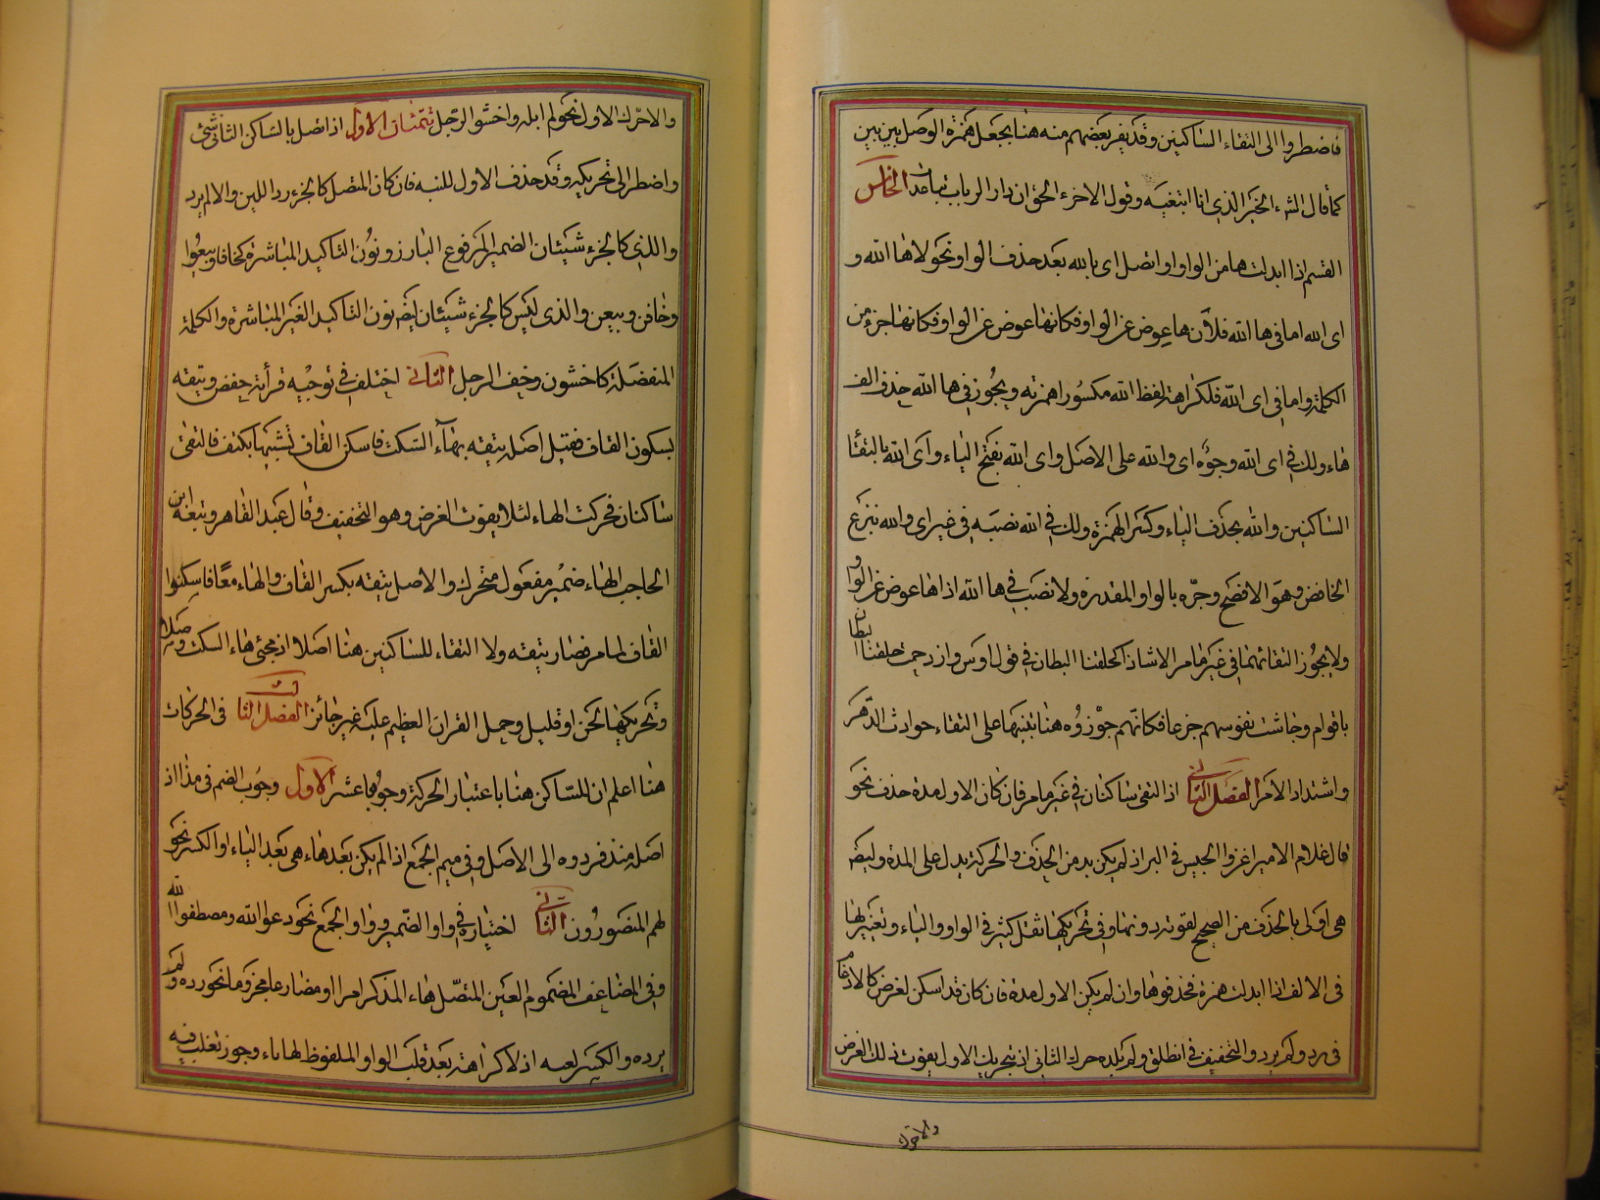 فاضطروا الى التقاء الساكنين وقد يفر بعضهم منه هنا بجعل همزة الوصل بين بين
كما قال الشاء الخير الذي انا ابتغيه وقول الاخرء الحق ان دار الرباب تباعدت الخامس
القسم اذا ابدلت ها من الواو او اتصل اى بالله بعد حذف الواو نحو لاها الله و
اى الله اما في ها الله فلان ها عوض عن الواو فكانها عوض عن الواو فكانها جزء من
الكلمة واما في اى الله فلكراهة لفظ الله مكسورا همزته ويجوز في ها الله حذف الف
هاء ولك في اى الله وجوه اى والله على الاصل واى الله بفتح الياء واى الله بالتقاء
الساكنين والله بحذف الياء وكسر الهمزة ولك في الله نصبه في غير اى والله بنزع
الخافض وهو الافصح وجره بالواو المقدرة ولا نصب في ها الله اذ ها عوض عن الواو
ولا يجوز التقائهما في غير ما مر الا شاذا كحلقتا البطان في قول اوس وازدحمت حلقتا البطان
باقوام وجاشت نفوسهم جزعا فكانهم جوزوه هنا تنبيها على التقاء حوادث الدهر
واشتداد الامر الفصل الثاني اذ التقى ساكنان في غير ما مر فان كان الاول مدة حذف نحو
قال غلام الامير اغزوا الجيس في البر اذ لم يكن بد من الحذف والحركة يدل على المدة وليضه
هي اولى بالحذف من الصحيح لقوته دونها وفي تحريكها ثقل كثير في الواو والياء وتغييرها
في الالف اذا ابدلت همزة فحذفوها وان لم يكن الاول مدة فان كان قد اسكن لغرض كالادغام
في رد ولم يرد والتخفيف في انطلق ولم يلده حرك الثاني اذ بتحريك الاول يفوت ذلك الغرض
والاحرك
والا حرك الاول نحو لم ابله واخشو الرجل تتمتان الاول اذا اتصل بالساكن الثاني شئ
واضطر الى تحريكه وقد حذف الاول للنبه فان كان المتصل كالجزء رد اللين والا لم يرد
والذي كالجزء شيئان الضمير المرفوع البارز ونون التاكيد المباشرة كخافا وبيعوا
وخافن وبيعن والذي ليس كالجزء شيئان ايضه نون التاكيد الغير المباشرة والكلمة
المنفصلة كاخشون وخف الرجل الثاني اختلف في توجيه قرأية حفص ويتقه
بسكون القاف فقيل اصله يتقه بهاء السكت فاسكن القاف تشبيها بكتف فالتقى
ساكنان فحركت الهاء لئلا يفوت الغرض وهو التخفيف وقال عبد القاهر وتبعه ابن
الحاجب الهاء ضمير مفعول متحرك والاصل يتقه بكسر القاف والهاء معا فاسكنوا
القاف لما مر فصار يتقه ولا التقاء للساكنين هنا اصلا اذ مجئ هاء السكت وصلا
وتحريكها لحن او قليل وحمل القران العظيم عليه غير جائز الفصل الثالث في الحركات
هنا اعلم ان للساكن هنا باعتبار الحركة وجوها عشر الاول وجوب الضم في مذ اذ
اصله منذ فردوه الى الاصل وفي ميم الجمع اذ الم يكن بعدها هي بعد الياء او الكسر نحو
لهم المنصورون الثاني اختياره في واو الضمير وواو الجمع نحو دعوا الله ومصطفوا الله
وفي المضاعف المضموم العين المتصل هاء المذكر امرا او مضارعا مجزوما نحو رده ولم
يرده والكسر لغيه اذ لا كراهة بعد قلب الواو الملفوظ لها ياء وجوز ثعلب فيه